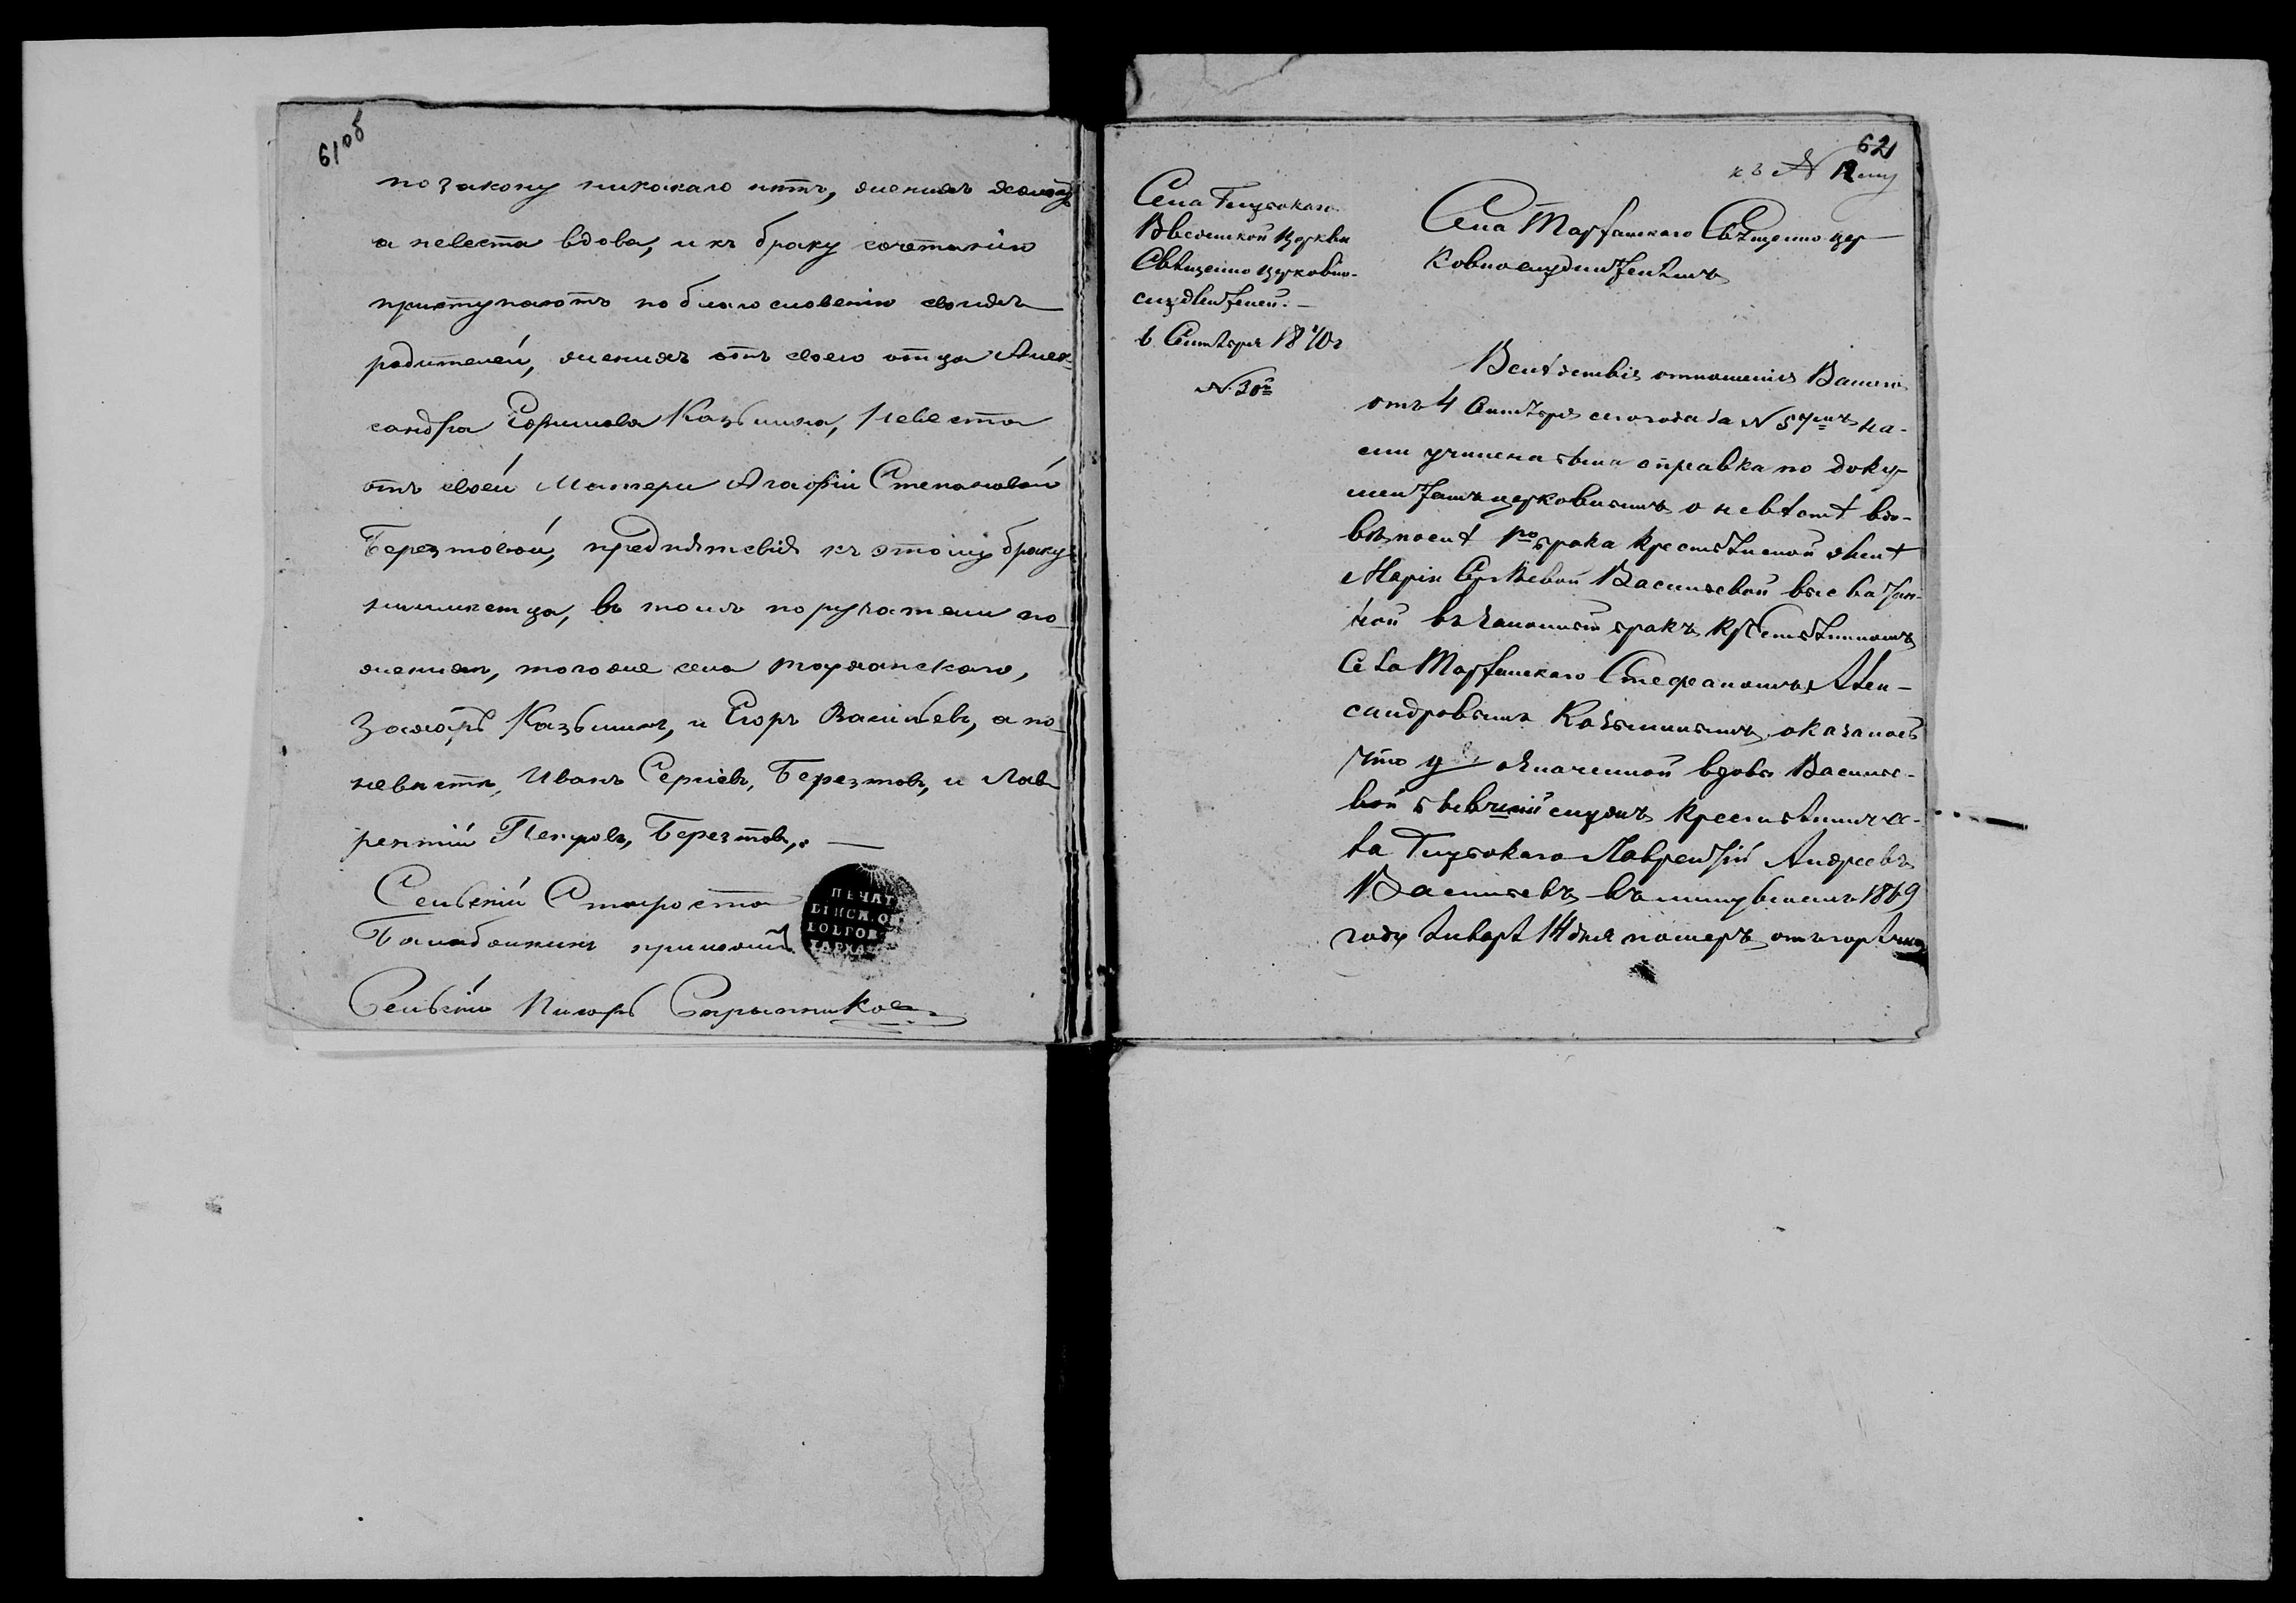 61об
по закону никокаго нетъ, жених холостъ
а невеста вдова, и къ браку сочетанию
приступаютъ по благословению своихъ
родителей, женихъ отъ своего отца Алек-
сандра Ефимова Казьмина, Невеста
отъ своей Матери Агафiи Степановой
Березтовой, предпятсвия къ этому браку
неимиетца, въ томъ поручатели по
женихи, того же села Торханскаго,
Захаръ Казьминъ, и Егоръ Васильевъ, а по
невести, Иванъ Сергiевъ, Березтовъ, и Лав
рентiй Петровъ, Березтовъ.
Сельскiй Старосто
Балабонкинъ приложилъ
ПЕЧАТ
Сельскiй Писарь Скрынниковъ
62
къ № 12му
Села Глубокаго
Введенской Церкви
Священно церковно-
служителей.
6 Сентября 1870 г
№ 30й
Села Тарханскаго Священно-цер
ковнослужителямъ
Вслѣдствiе отношенiя Вашего
отъ 4 Сентября сего года за № 57мъ на-
ми учинена была справка по доку-
ментамъ церковнымъ о невѣстѣ вдо-
вѣ послѣ 1го брака крестьянской женѣ
Марiи Сергѣевой Васильевой высватан-
ной въ законный бракъ крестьяниномъ
села Тарханскаго Стефаномъ Алек-
сандровымъ Козьминымъ, оказалось
что у означенной вдовы Василье-
вой бывшiй мужъ крестьянинъ се-
ла Глубокаго Лаврентiй Андреевъ
Васильевъ въ минувшемъ 1869
году Января 14 дня померъ отъ горячки